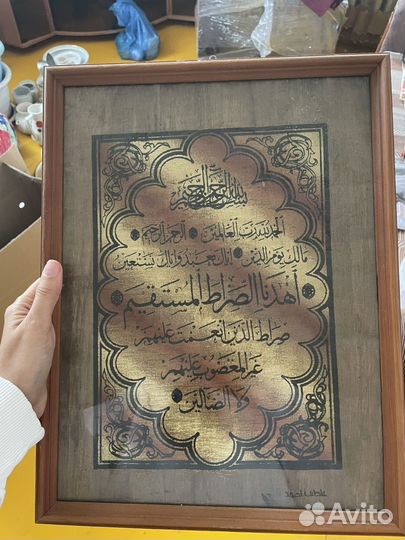 بسم الله الرحمن الرحيم
الحمد لله رب العالمين الرحمن الرحيم
مالك يوم الدين إياك نعبد وإياك نستعين
أهدنا الصراط المستقيم
صراط الذين أنعمت عليهم
غير المغضوب عليهم
ولا الضالين
Avito